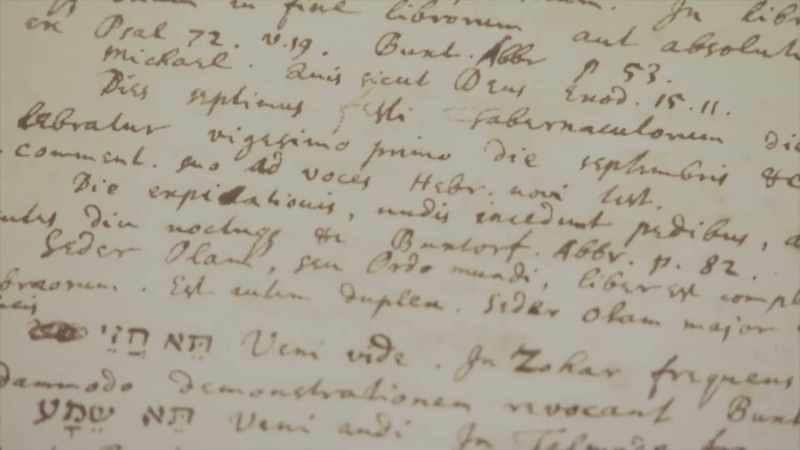 in fine librorum. In libr
ex Psal 72. v. 19. Buxt. Abbr p 53. aut absoluti
Michael. Quis sicut Deus Exod. 15. 11.
Dies septimus festi Tabernaculorum die
lebratur vigesimo primo die septembris &c
comment. suo ad voces Hebr. novi test.
Die expiationis, nudis incedunt pedibus, a
diu noctuqs &c Buxtorf. Abbr. p. 82.
Seder Olam, seu Ordo mundi, liber est comple
braorum. Est autem duplex. Seder Olam major
תא חזי Veni vide. In Zohar frequens
dammodo demonstrationem revocant Buxt
תא שמע Veni audi In Talmude